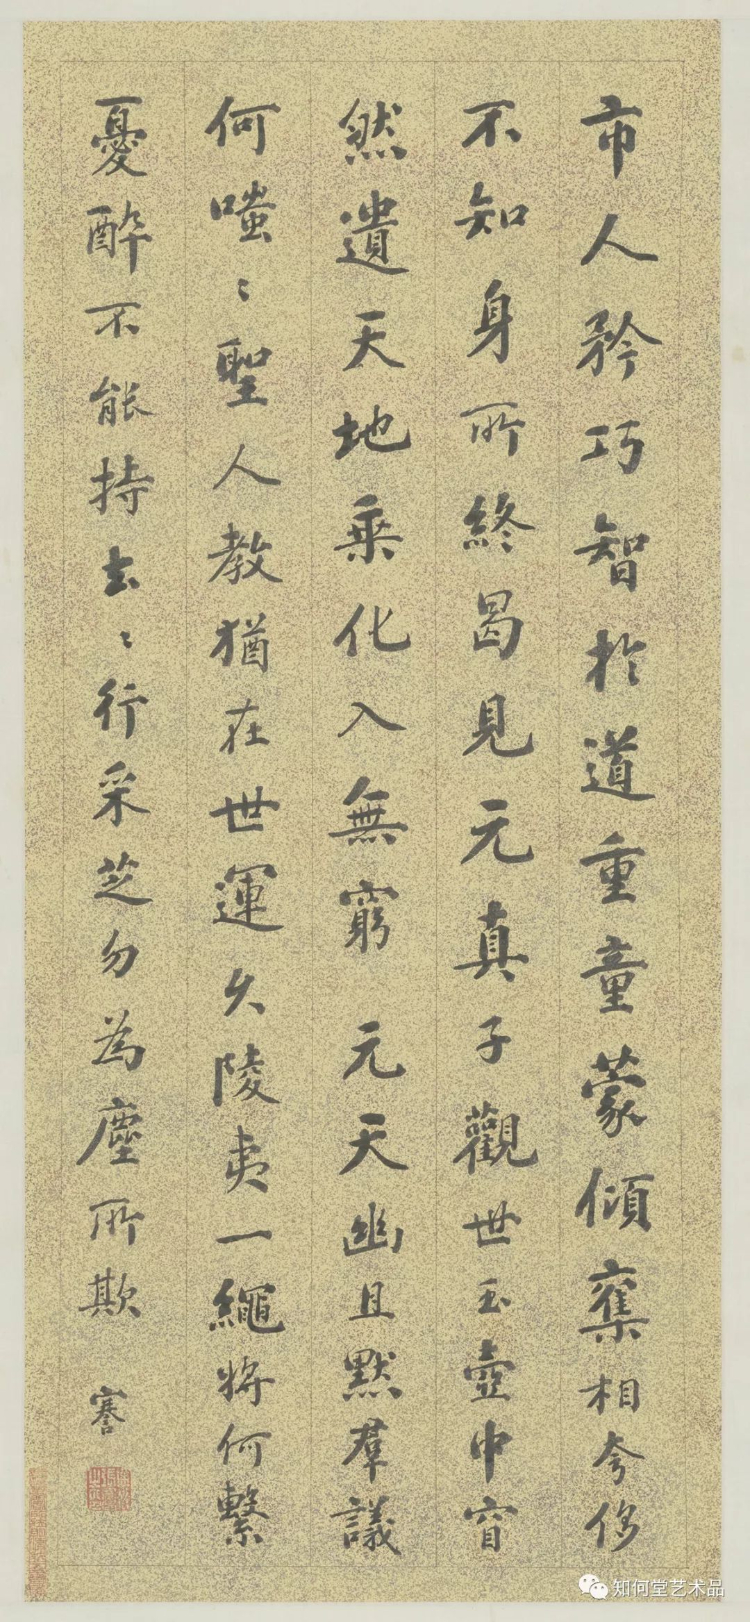 市人矜巧智於道重童蒙傾奪相夸侈
不知身所終曷見元真子觀世玉壺中窅
然遺天地乘化入無窮 元天幽且默羣議
何嗤〻聖人教猶在世運久陵夷一繩將何繫
憂醉不能持去〻行采芝勿為塵所欺 謇
知何堂艺术品